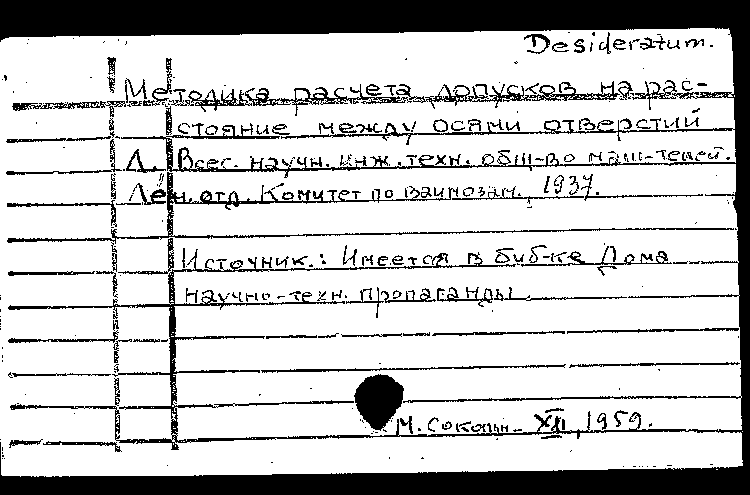 Desideratum.
Методика расчета допусков на рас-
стояние между осями отверстий
Л. Всес. научн. инж. техн. общ-во маш-телей.
Лен. отд. Комитет по взаимозам., 1937.
Источник.: Имеется в биб-ке Дома
научно-техн. пропаганды
М. XII, 1959.